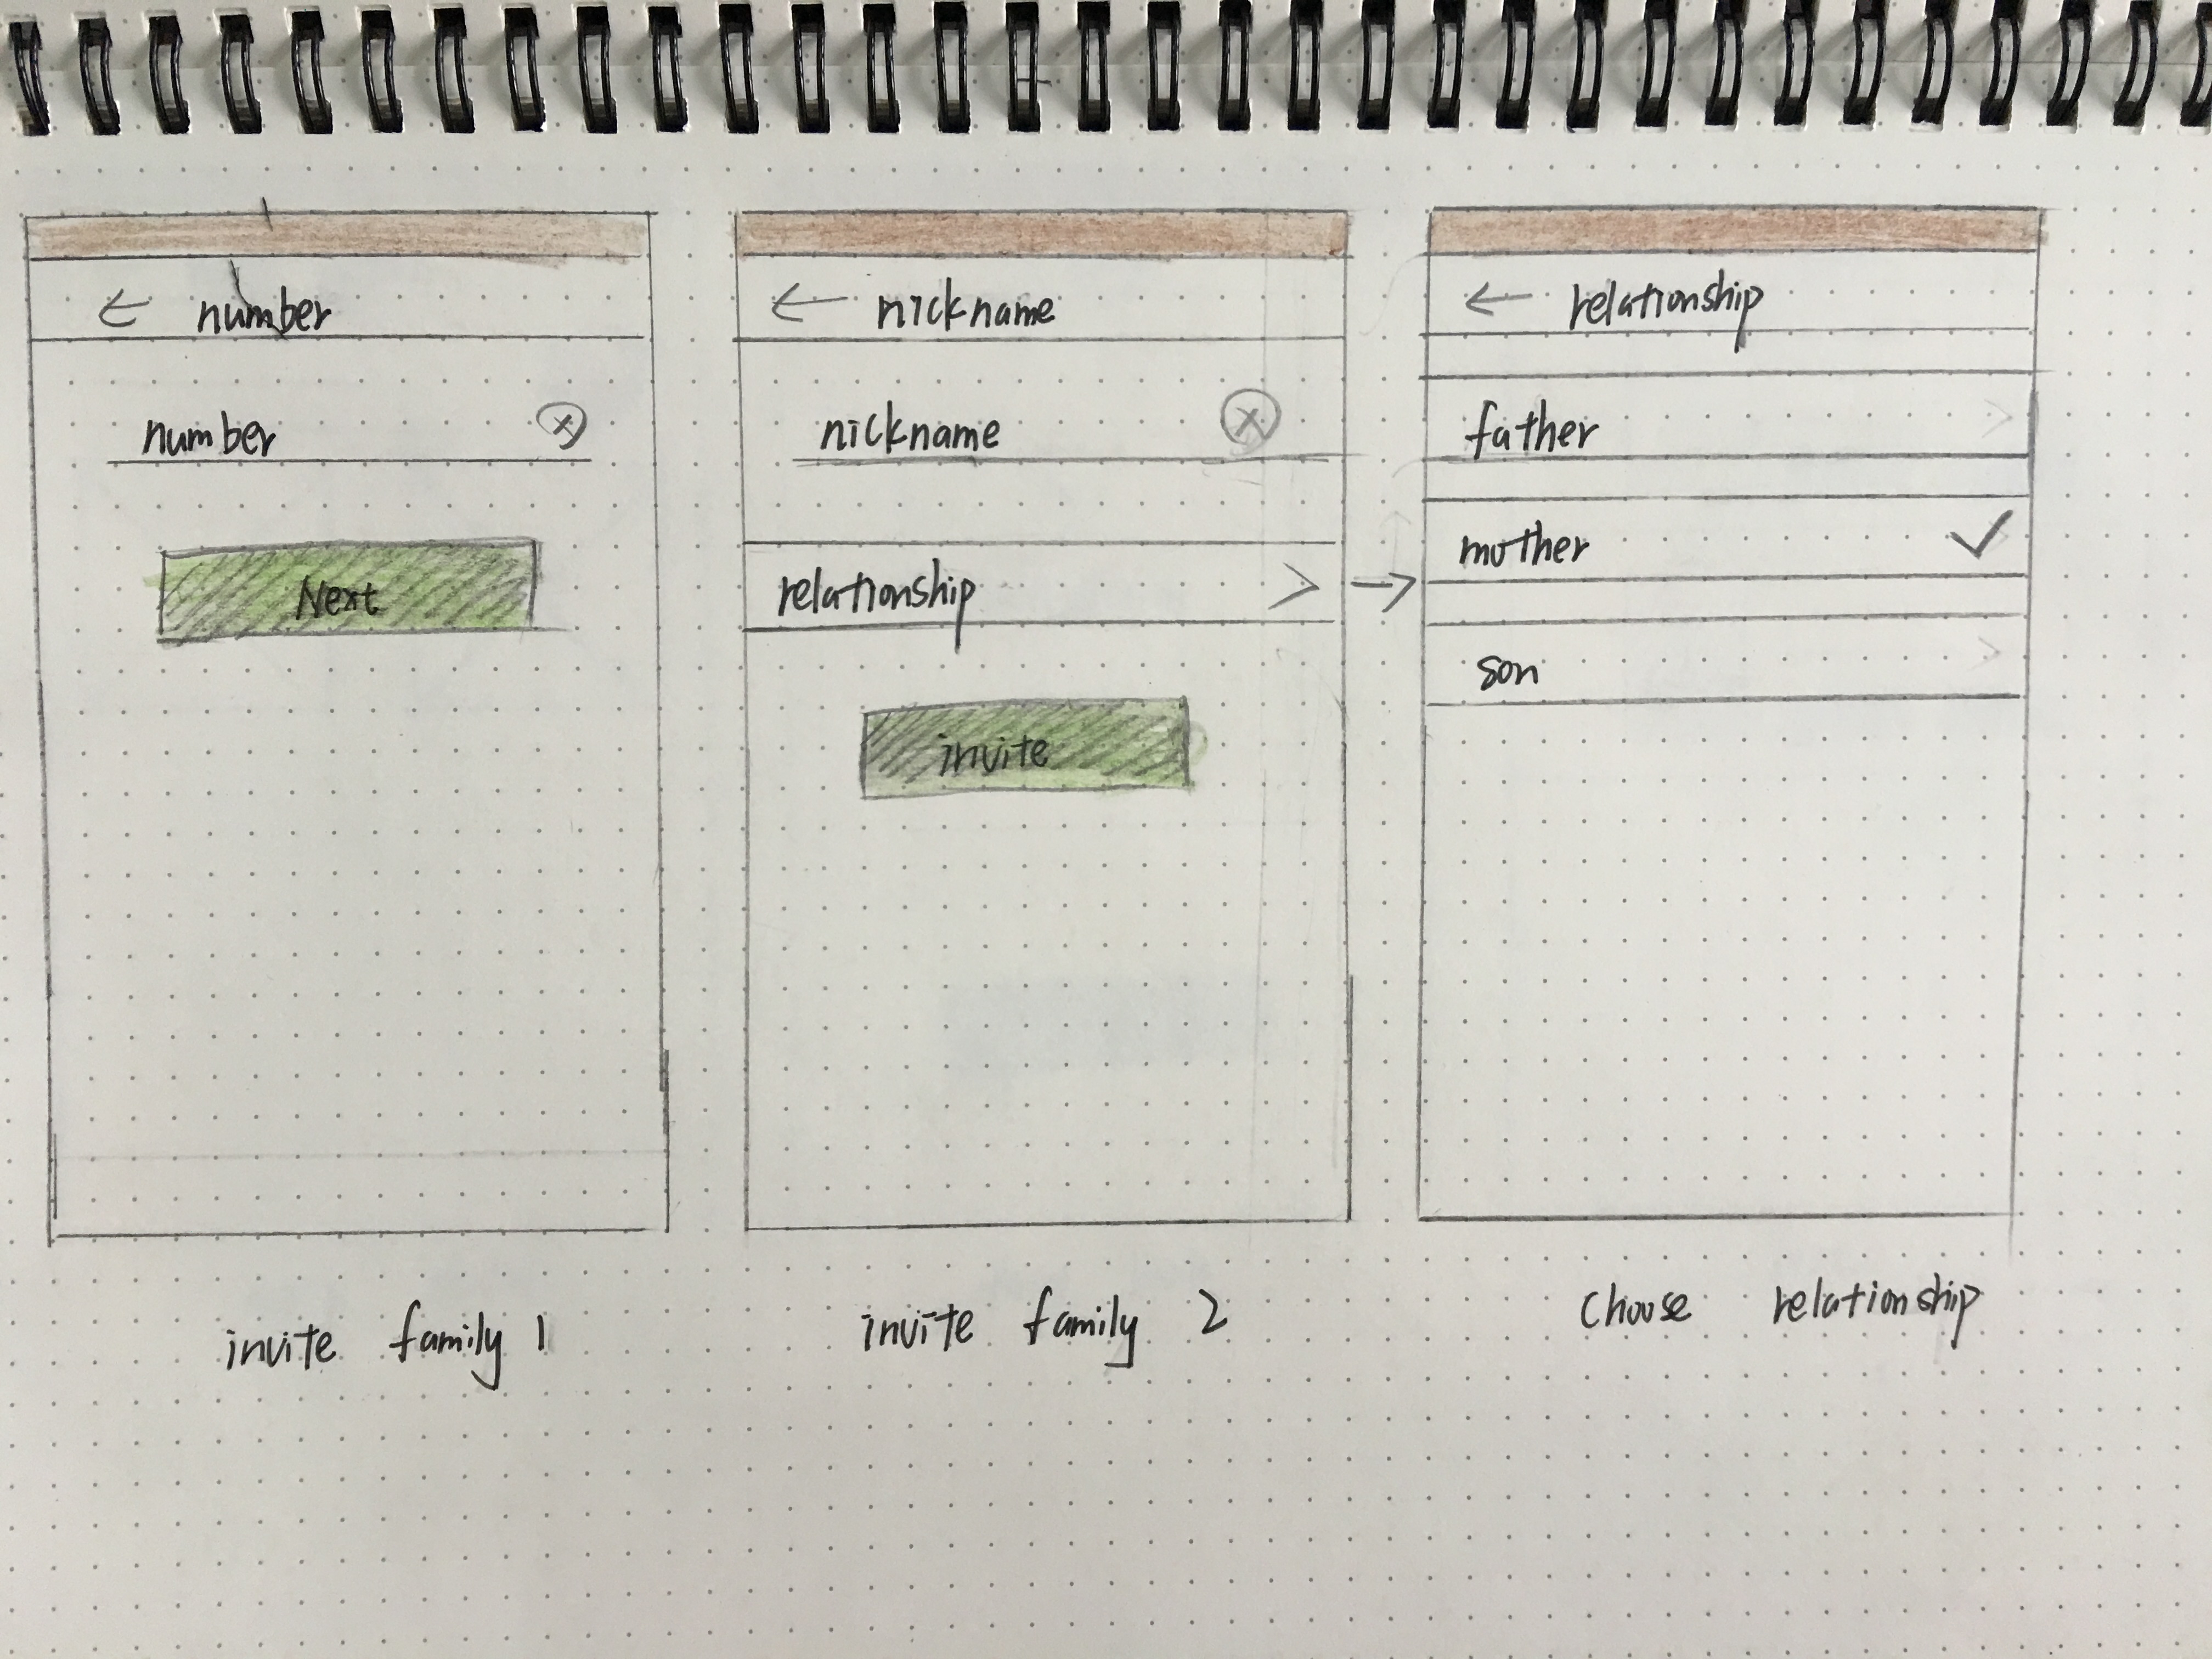 number
number
Next
invite family 1
nickname
nickname
relationship
invite
invite family 2
relationship
father
mother
son
choose relationship